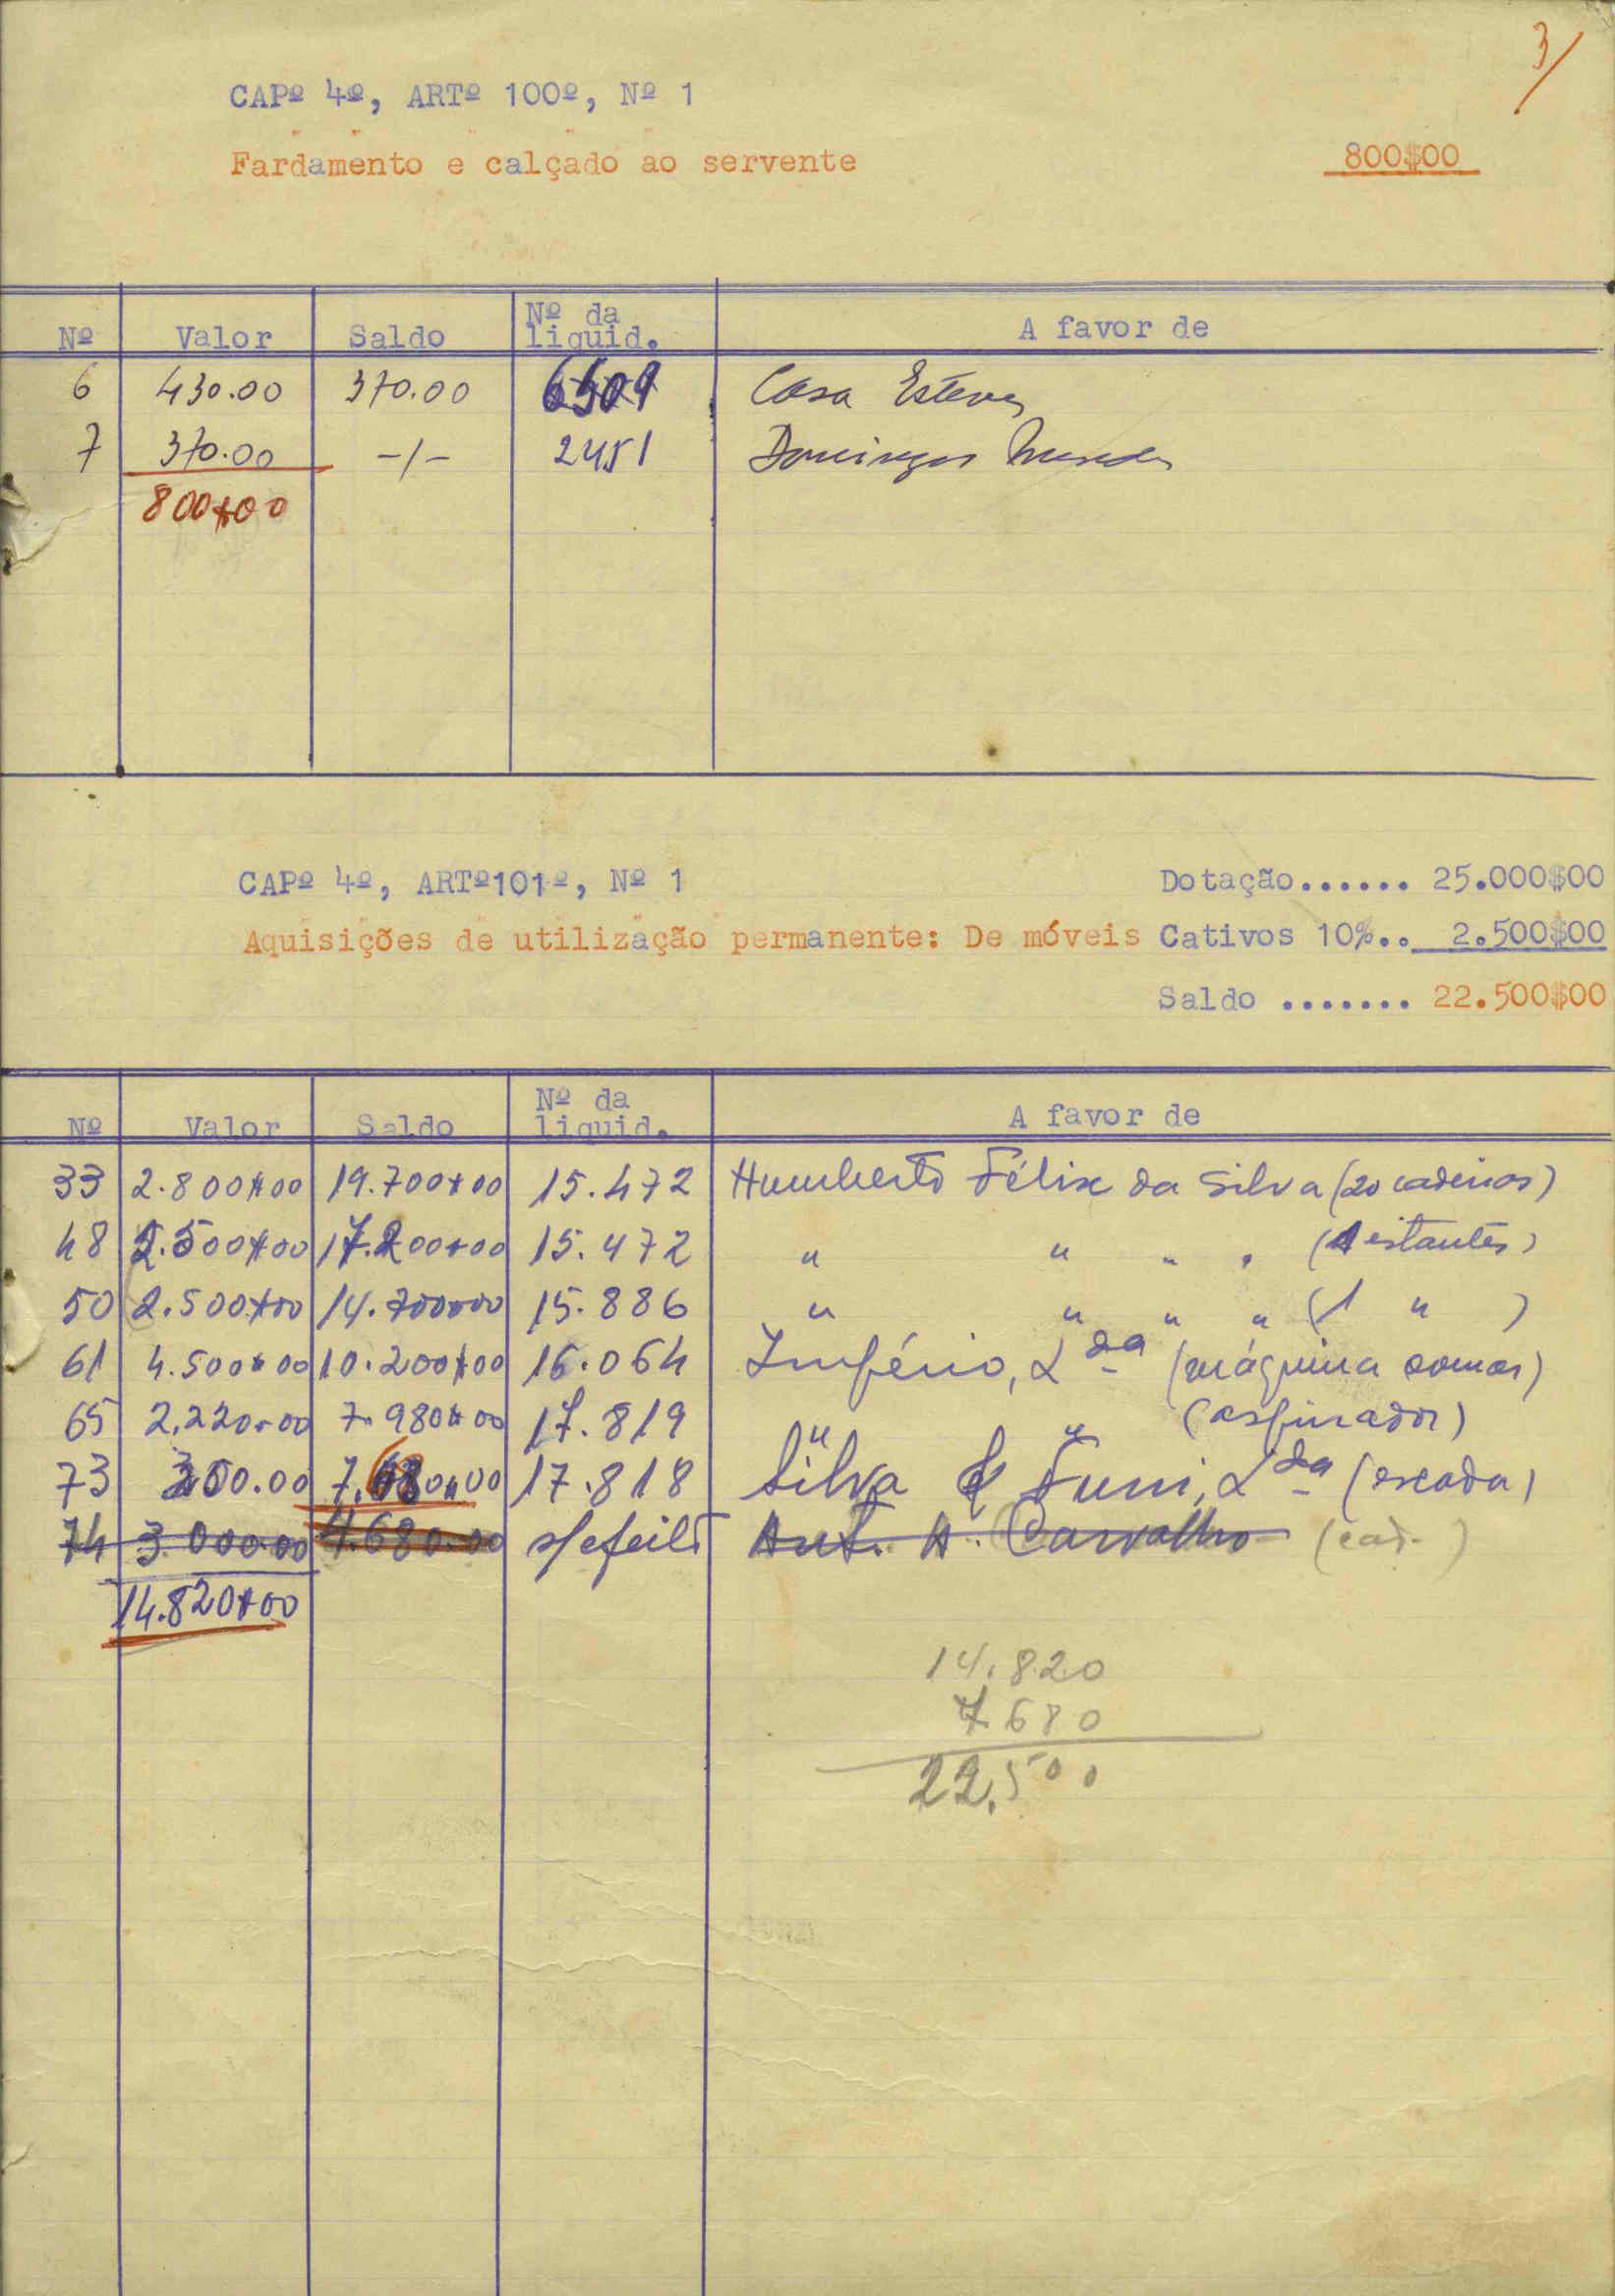 3/
CAPº 4º, ARTº 100º, Nº 1
Fardamento e calçado ao servente 800$00
Nº Valor Saldo Nº da liquid. A favor de
6 430.00 370.00 Casa Esteves
7 370.00 -/- 2451 Domingos Mendes
800$00
CAPº 4º, ARTº101º, Nº 1 Dotação...... 25.000$00
Aquisições de utilização permanente: De móveis Cativos 10%.. 2.500$00
Saldo ....... 22.500$00
Nº Valor Saldo Nº da liquid. A favor de
33 2.800$00 19.700$00 15.472 Humberto Félix da Silva (20 cadeiras)
48 2.500$00 17.200$00 15.472 " " " " (1 estantes)
50 2.500$00 14.700$00 15.886 " " " " (1 " )
61 4.500$00 10.200$00 16.064 Império, Lda (máquina somar)
65 2.220.00 7.980$00 17.819 " " (aspirador)
73 300.00 7.680.00 17.818 Silva & Funi, Lda (escada)
74 3.000.00 4.680.00 s/efeito Ant. A. Carvalho (cad.)
14.820$00
14.820
7.680
22.500